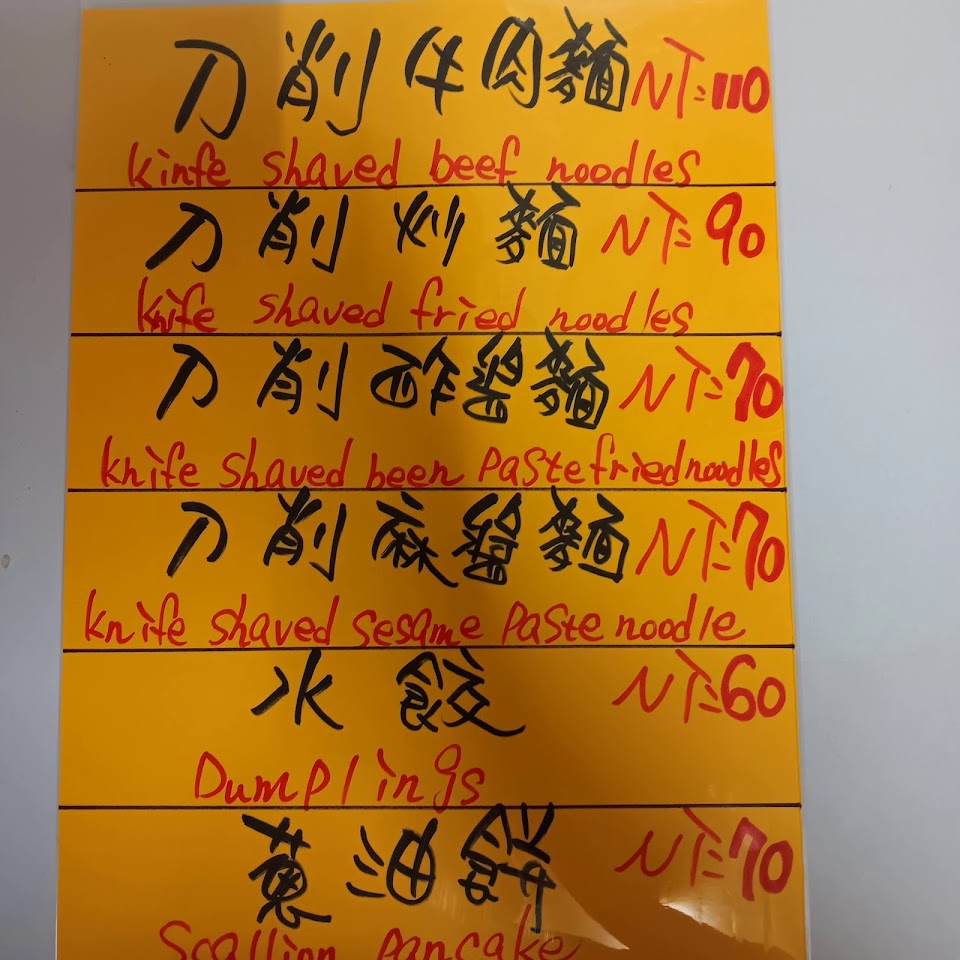 刀削牛肉麵 NT:110
kinfe shaved beef noodles
刀削炒麵 NT:90
knife shaved fried noodles
刀削酢醤麵 NT:70
knife shaved been paste fried noodles
刀削麻醬麵 NT:70
knife shaved sesame paste noodle
水餃 NT:60
Dumplings
蔥油餅 NT:70
Scallion pancake